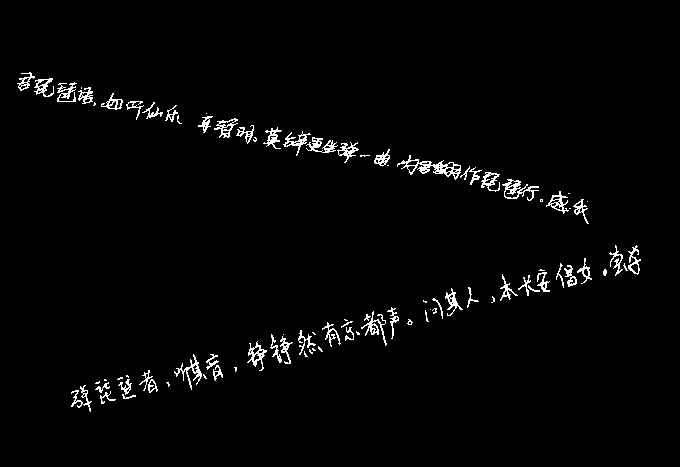 君琵琶语,如听仙乐 耳暂明。莫辞更坐弹一曲 为君翻作琵琶行。感我
弹琵琶者,听其音,铮铮然有京都声。问其人,本长安倡女。尝学